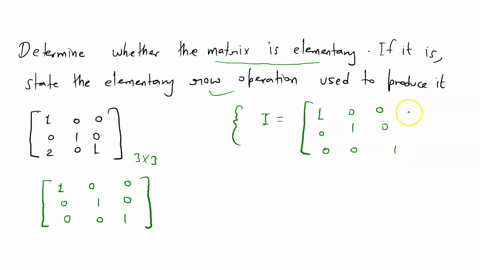 Determine whether the matrix is elementary. If it is,
state the elementary row operation used to produce it
[1 0 0
0 1 0
2 0 1] 3x3
{ I = [1 0 0
0 1 0
0 0 1
[1 0 0
0 1 0
0 0 1]